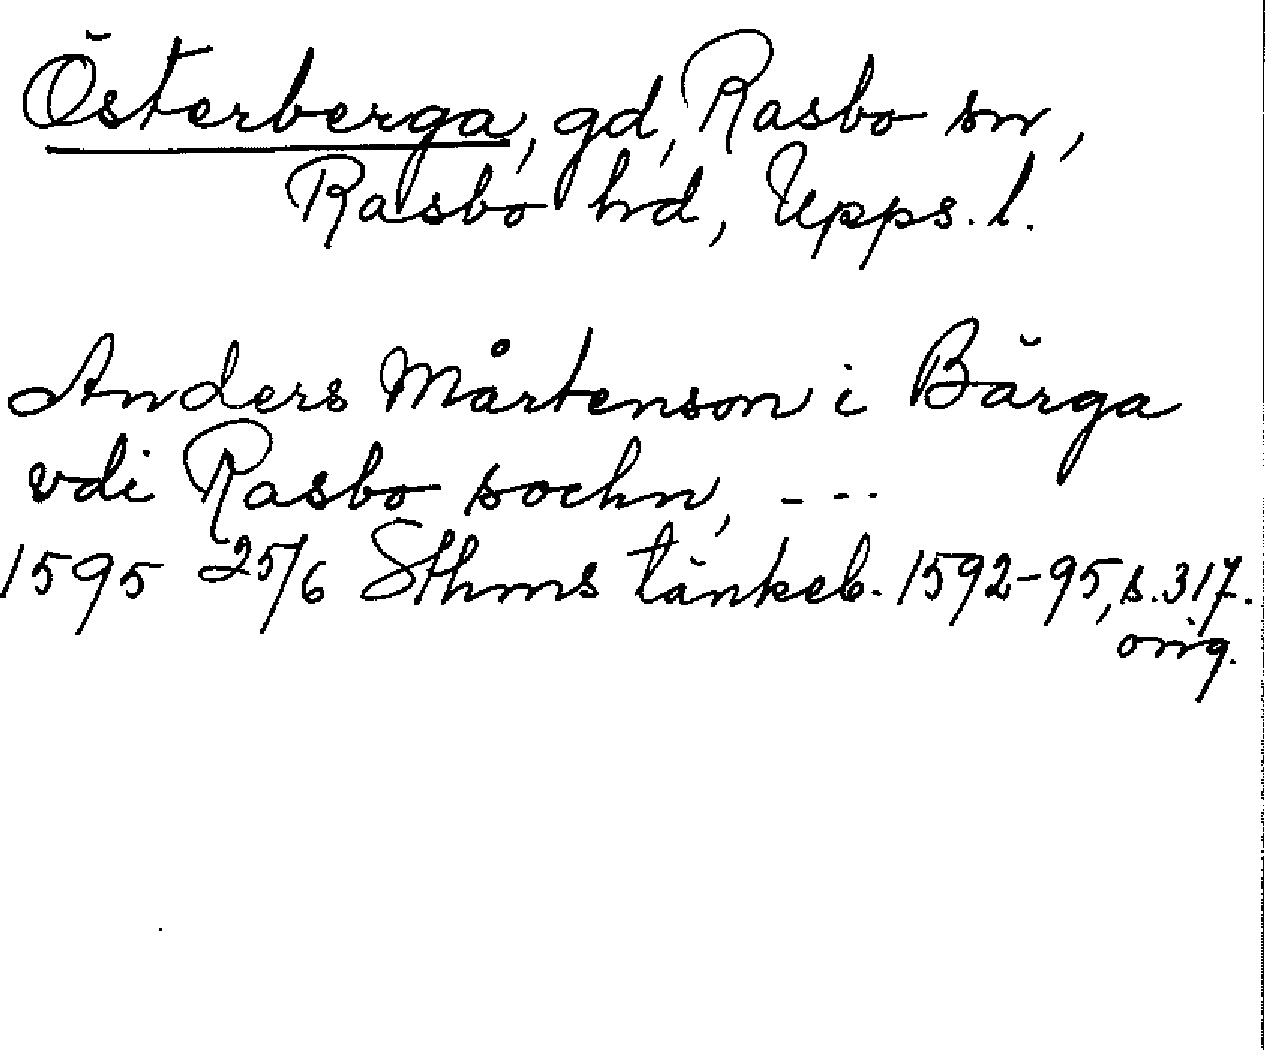 Österberga, gd, Rasbo sn,
Rasbo hd, Upps. l.
Anders Mårtenson i Bärga
vdi Rasbo sochn, - - -
1595 25/6 Sthms tänkeb. 1592-95, s. 317.
orig.